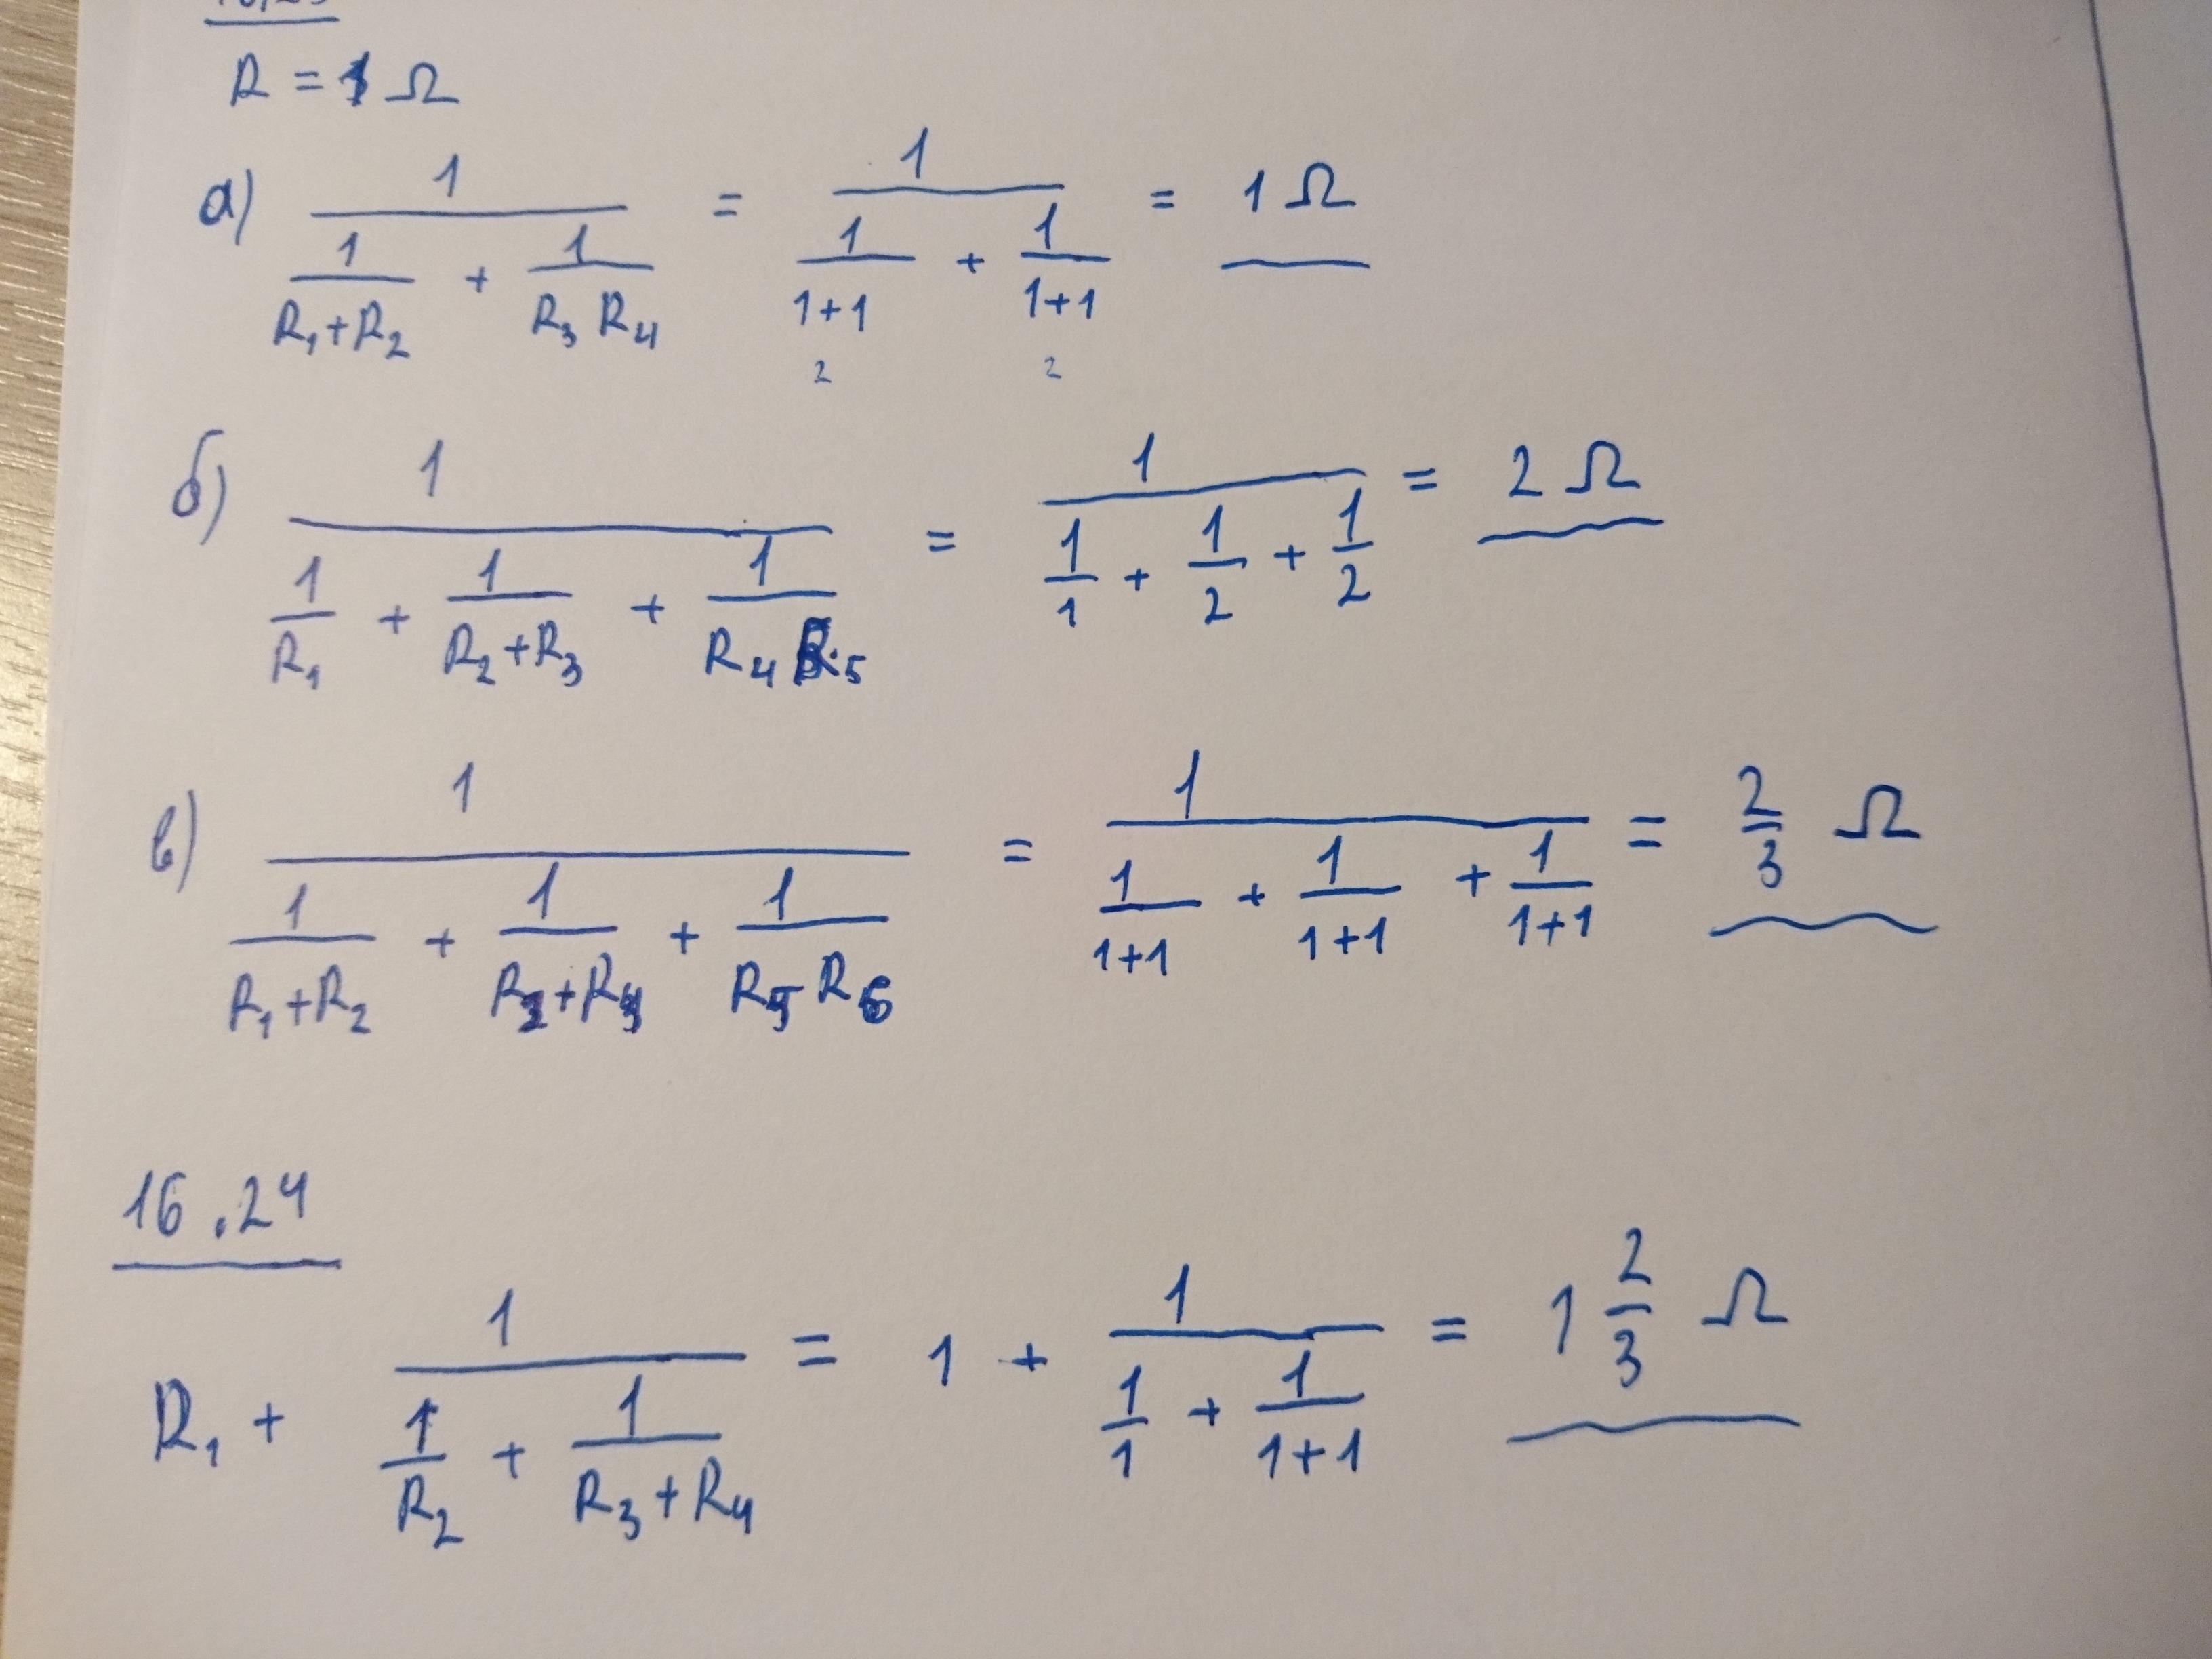 R = 1 Ω
а) 1/(1/(R₁+R₂) + 1/(R₃ R₄)) = 1/(1/(1+1) + 1/(1+1)) = 1 Ω
2 2
б) 1/(1/R₁ + 1/(R₂+R₃) + 1/(R₄ R₅)) = 1/(1/1 + 1/2 + 1/2) = 2 Ω
в) 1/(1/(R₁+R₂) + 1/(R₃+R₄) + 1/(R₅ R₆)) = 1/(1/(1+1) + 1/(1+1) + 1/(1+1)) = 2/3 Ω
16.24
R₁ + 1/(1/R₂ + 1/(R₃+R₄)) = 1 + 1/(1/1 + 1/(1+1)) = 1 2/3 Ω